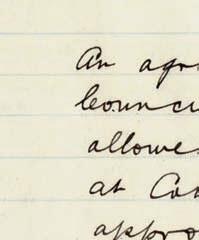 An agr
Counci
allowe
at Co
appro